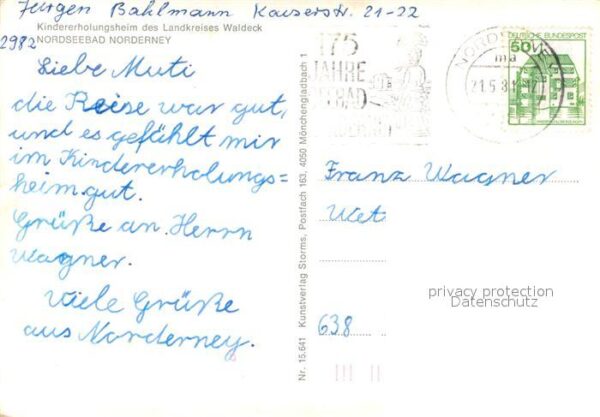 Jürgen Bahlmann Kaiserstr. 21-22
Kindererholungsheim des Landkreises Waldeck
2982 NORDSEEBAD NORDERNEY
Liebe Muti
die Reise war gut,
und es gefählt mir
im Kindererholungs=
heim gut.
Grüße an Herrn
Wagner.
Viele Grüße
aus Norderney.
Nr. 15.641 Kunstverlag Storms, Postfach 163, 4050 Mönchengladbach 1
175
JAHRE
NORDERNEY
ma
21.5.
DEUTSCHE BUNDESPOST
50
Franz Wagner
Wet
638
privacy protection
Datenschutz